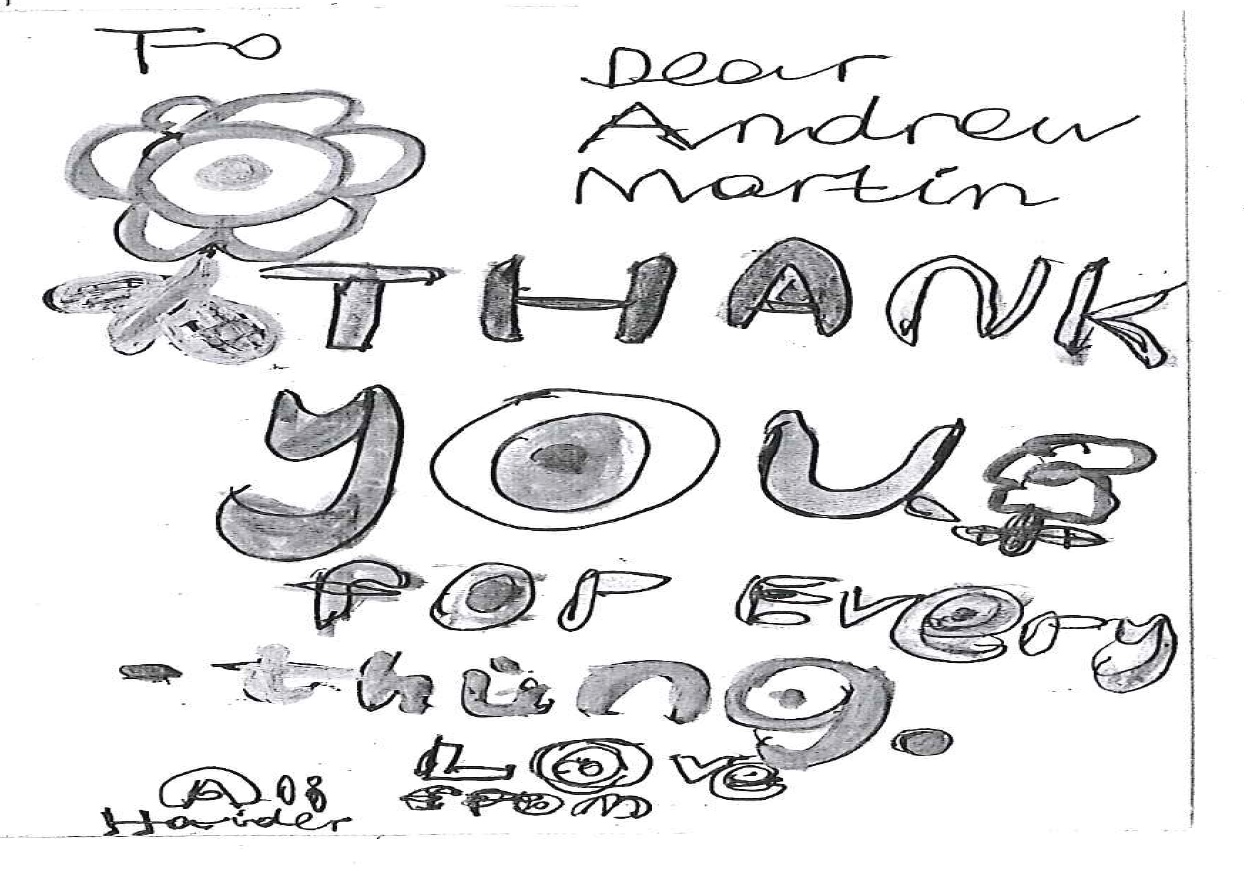 To
Dear
Andrew
Martin
THANK
you
for Every
-thing.
Love
from
Haider